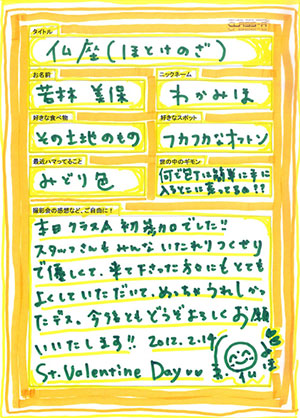 タイトル
仏座(ほとけのざ)
お名前
ニックネーム
若林 美保
わかみほ
好きな食べ物
好きなスポット
その土地のもの
フカフカなオフトン
最近ハマってること
世の中のギモン
みどり色
何で包丁は簡単に手に
入るとこに売ってるの??
撮影会の感想など、ご自由に!
本日クラスA 初参加でした!!
スタッフさんもみんないたれりつくせり
で優しくて、来て下さった方々にもとても
よくしていただいて、めっちゃうれしかっ
たデス。今後ともどうぞよろしくお願
いいたします!! 2012.2.14
St. Valentine Day